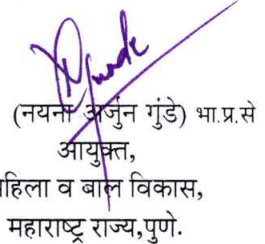 (नयना अर्जुन गुंडे) भा.प्र.से
आयुक्त,
महिला व बाल विकास,
महाराष्ट्र राज्य,पुणे.